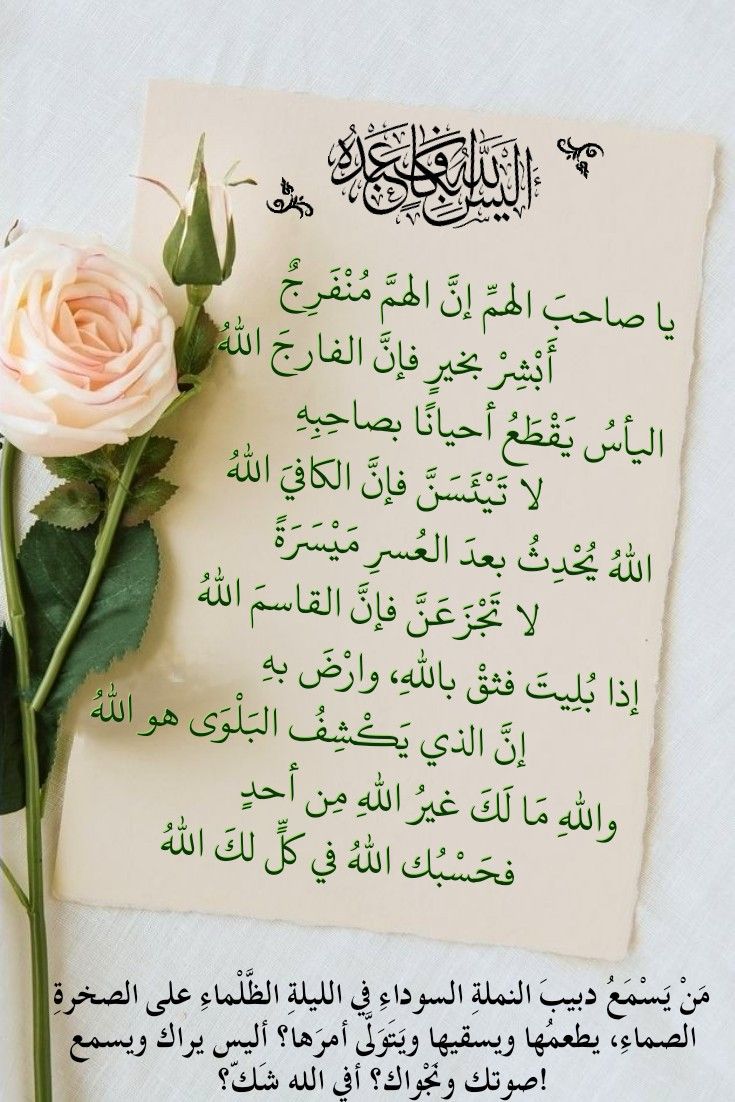 أليس الله بكاف عبده
يا صاحبَ الهمِّ إنَّ الهمَّ مُنْفَرِجٌ
أَبْشِرْ بخيرٍ فإنَّ الفارجَ اللهُ
اليأسُ يَقْطَعُ أحيانًا بصاحِبِهِ
لا تَيْئَسَنَّ فإنَّ الكافيَ اللهُ
اللهُ يُحْدِثُ بعدَ العُسرِ مَيْسَرَةً
لا تَجْزَعَنَّ فإنَّ القاسمَ اللهُ
إذا بُلِيتَ فثقْ باللهِ، وارْضَ بهِ
إنَّ الذي يَكْشِفُ البَلْوَى هو اللهُ
واللهِ مَا لَكَ غيرُ اللهِ مِن أحدٍ
فحَسْبُك اللهُ في كلٍّ لكَ اللهُ
مَنْ يَسْمَعُ دبيبَ النملةِ السوداءِ في الليلةِ الظَّلْماءِ على الصخرةِ
الصماءِ، يطعمُها ويسقيها ويَتَوَلَّى أمرَها؟ أليس يراك ويسمع
صوتك ونَجْواك؟ أفي الله شَكّ؟!